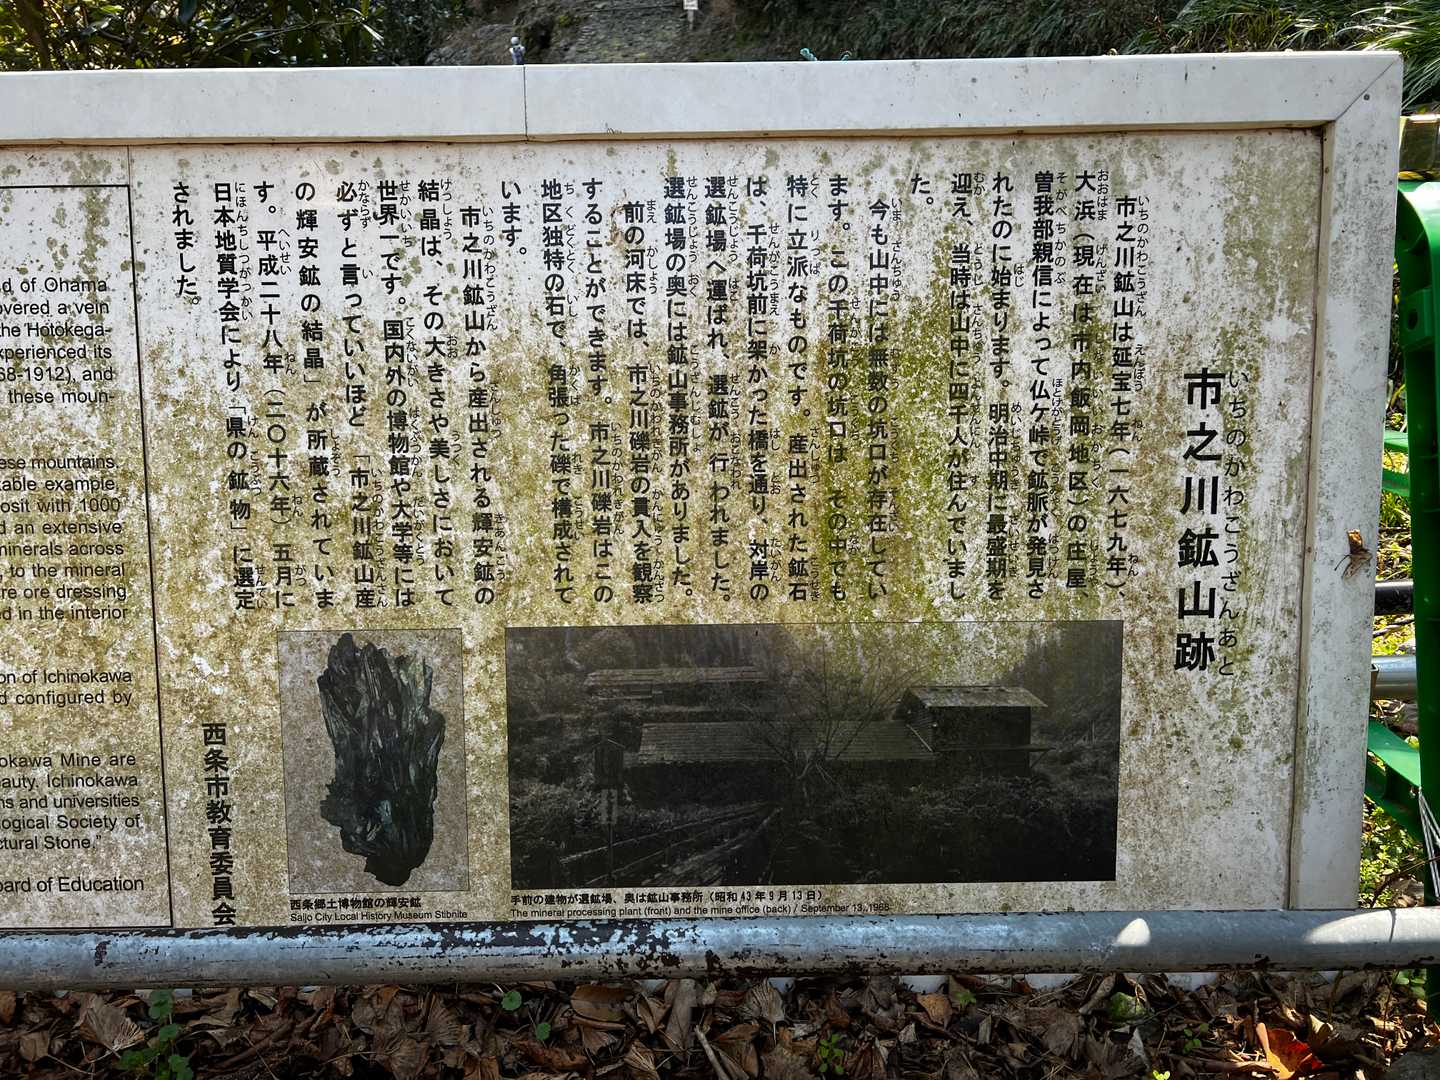 市之川鉱山跡
いちのかわこうざんあと
市之川鉱山は延宝七年（一六七九年）、
大浜（現在は市内飯岡地区）の庄屋、
曽我部親信によって仏ケ峠で鉱脈が発見さ
れたのに始まります。明治中期に最盛期を
迎え、当時は山中に四千人が住んでいまし
た。
今も山中には無数の坑口が存在してい
ます。この千荷坑の坑口は その中でも
特に立派なものです。産出された鉱石
は、千荷坑前に架かった橋を通り、対岸の
選鉱場へ運ばれ、選鉱が行われました。
選鉱場の奥には鉱山事務所がありました。
前の河床では、市之川礫岩の貫入を観察
することができます。市之川礫岩はこの
地区独特の石で、角張った礫で構成されて
います。
市之川鉱山から産出される輝安鉱の
結晶は、その大きさや美しさにおいて
世界一です。国内外の博物館や大学等には
必ずと言っていいほど「市之川鉱山産
の輝安鉱の結晶」が所蔵されていま
す。平成二十八年（二〇十六年）五月に
日本地質学会により「県の鉱物」に選定
されました。
西条市教育委員会
西条郷土博物館の輝安鉱
Saijo City Local History Museum Stibnite
手前の建物が選鉱場、奥は鉱山事務所（昭和43年9月13日）
The mineral processing plant (front) and the mine office (back) / September 13, 1968
d of Ohama
overed a vein
the Hotokega-
xperienced its
68-1912), and
these moun-
ese mountains.
able example,
osit with 1000
d an extensive
minerals across
, to the mineral
re ore dressing
ed in the interior
on of Ichinokawa
d configured by
okawa Mine are
eauty. Ichinokawa
ns and universities
ological Society of
ctural Stone."
oard of Education